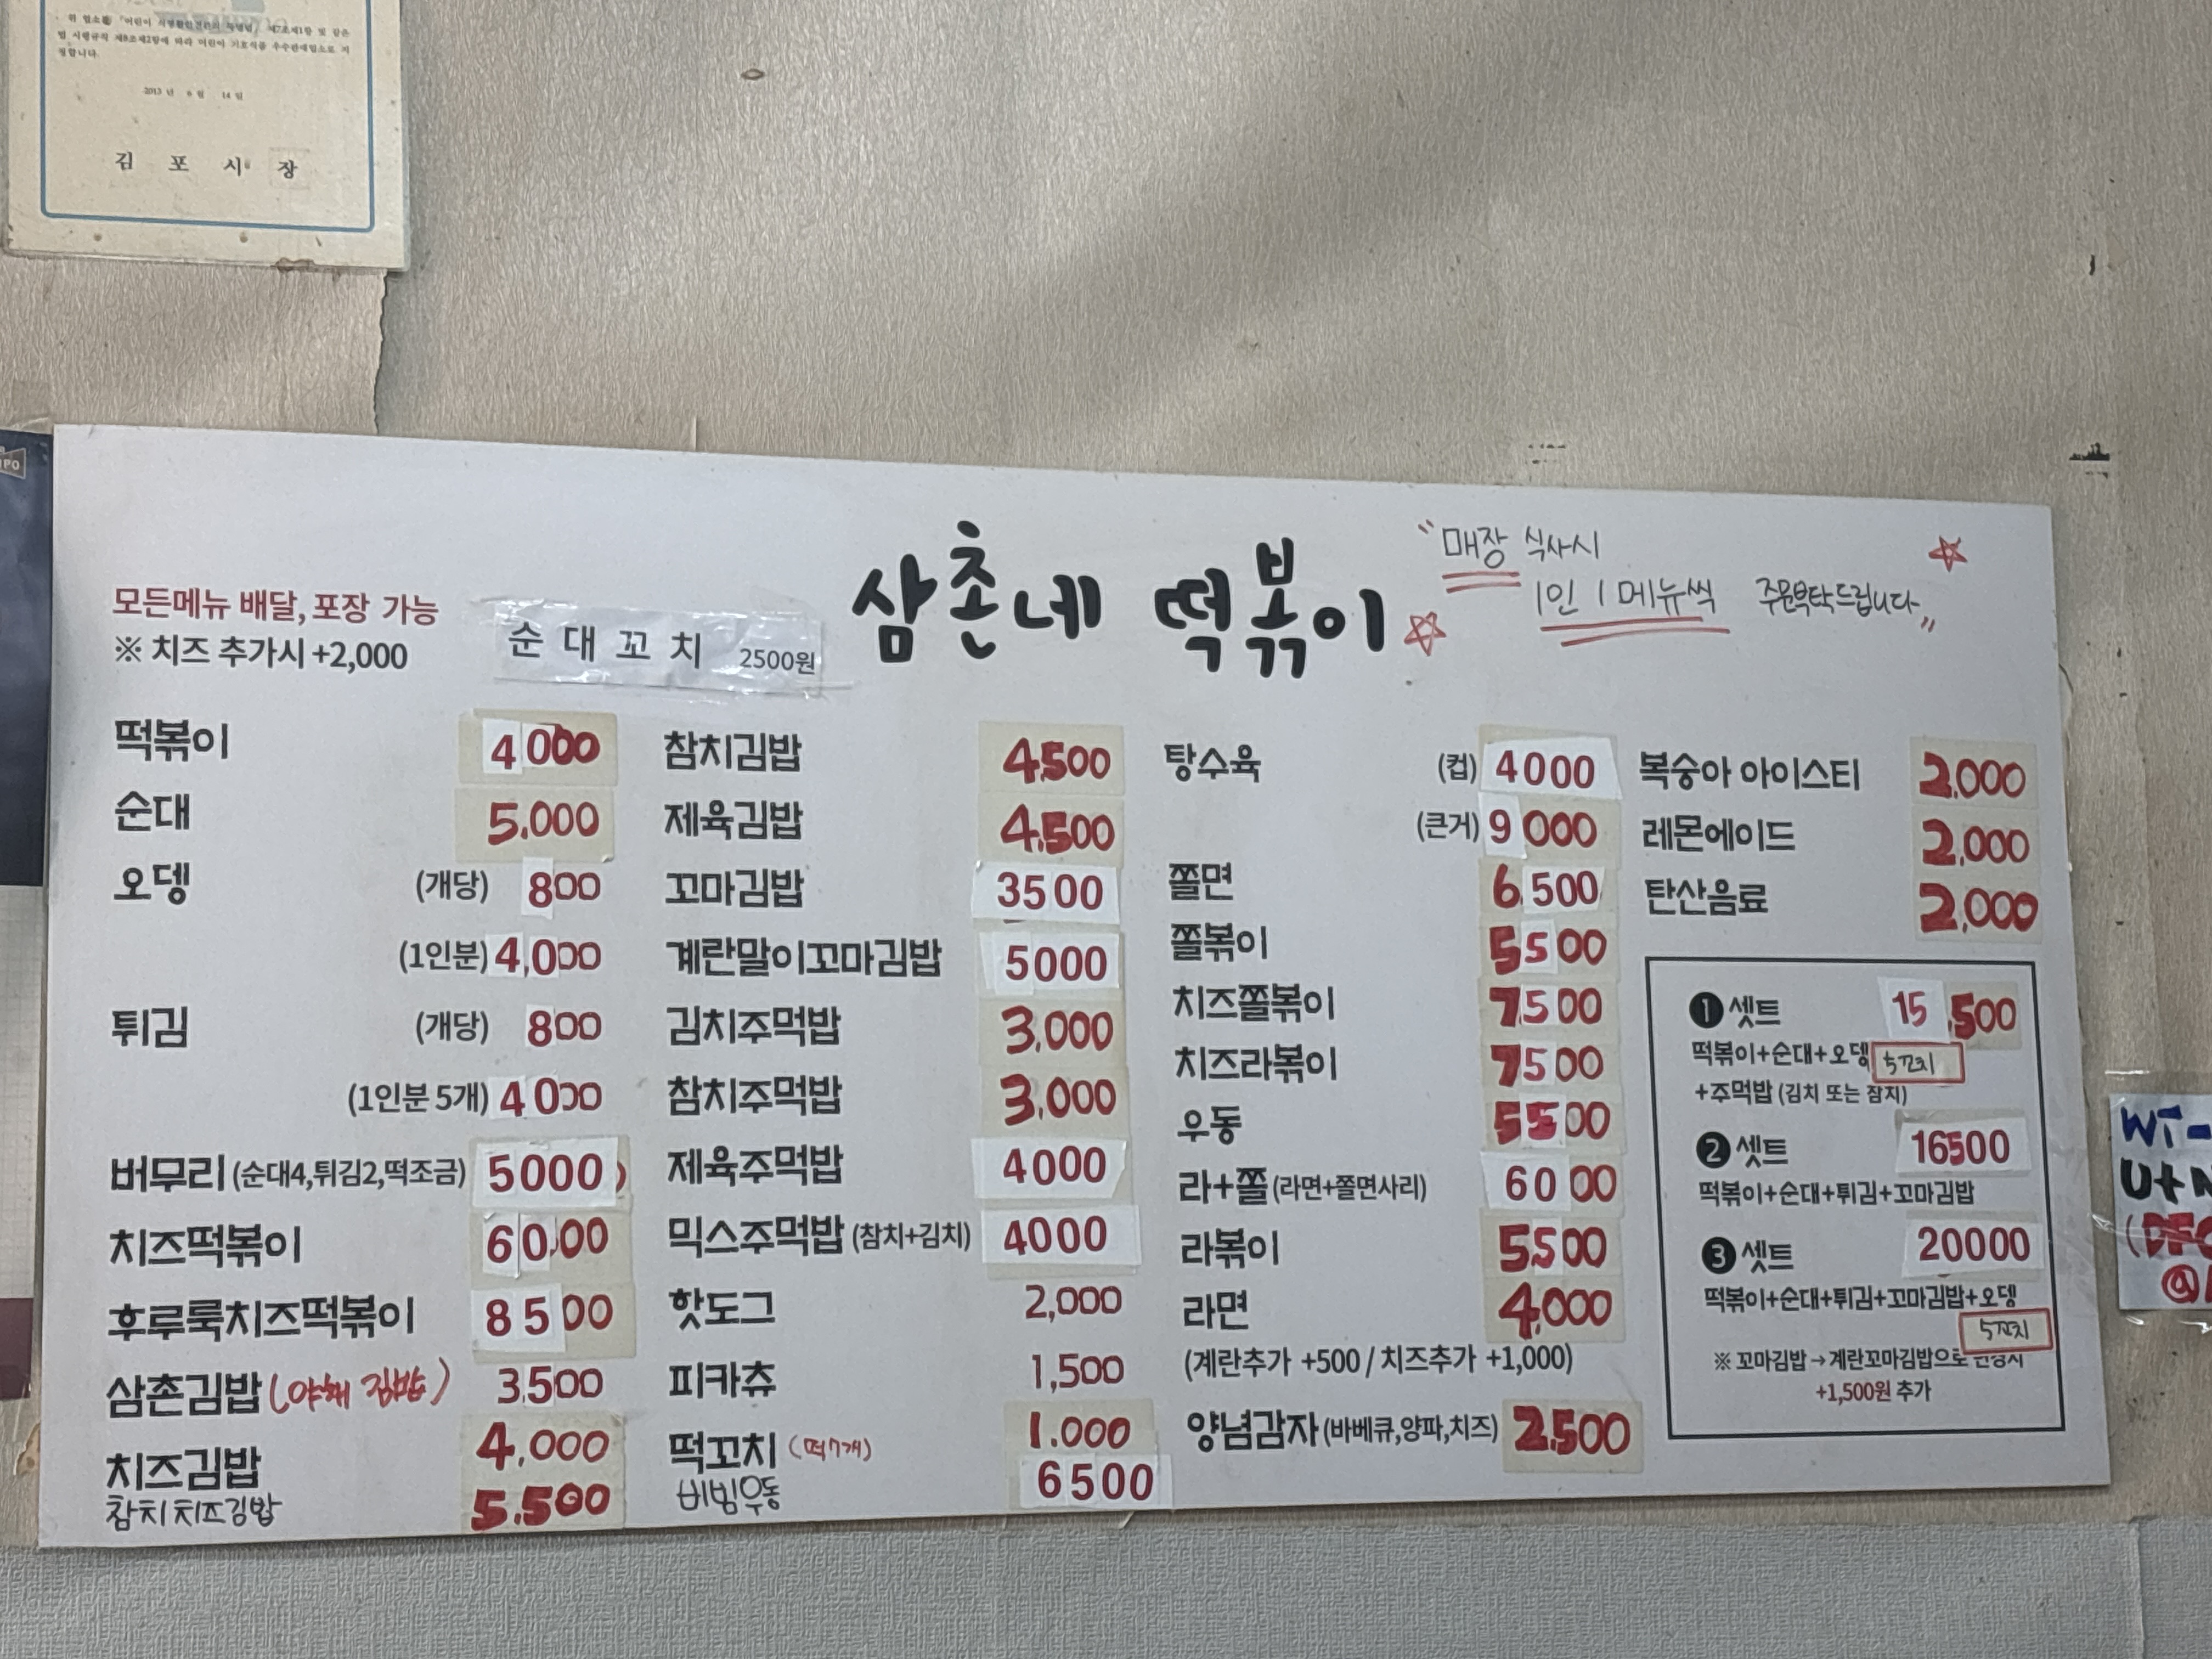 위 업소를 「어린이 식생활안전관리 특별법」 제7조제1항 및 같은
법 시행규칙 제8조제2항에 따라 어린이 기호식품 우수판매업소로 지
정합니다.
2013 년 6 월 14 일
김 포 시 장
삼촌네 떡볶이
"매장 식사시
1인 1메뉴씩 주문부탁드립니다"
모든메뉴 배달, 포장 가능
※ 치즈 추가시 +2,000
순대꼬치 2500원
떡볶이 4000
순대 5,000
오뎅 (개당) 800
(1인분) 4,000
튀김 (개당) 800
(1인분 5개) 4000
버무리 (순대4,튀김2,떡조금) 5000
치즈떡볶이 6000
후루룩치즈떡볶이 8500
삼촌김밥 (야채 김밥) 3,500
치즈김밥 4,000
참치치즈김밥 5,500
참치김밥 4,500
제육김밥 4,500
꼬마김밥 3500
계란말이꼬마김밥 5000
김치주먹밥 3,000
참치주먹밥 3,000
제육주먹밥 4000
믹스주먹밥 (참치+김치) 4000
핫도그 2,000
피카츄 1,500
떡꼬치 (떡7개) 1.000
비빔우동 6500
탕수육 (컵) 4000
(큰거) 9000
쫄면 6,500
쫄볶이 5500
치즈쫄볶이 7500
치즈라볶이 7500
우동 5500
라+쫄 (라면+쫄면사리) 6000
라볶이 5,500
라면 4,000
(계란추가 +500 / 치즈추가 +1,000)
양념감자 (바베큐,양파,치즈) 2,500
복숭아 아이스티 2,000
레몬에이드 2,000
탄산음료 2,000
❶ 셋트 15,500
떡볶이+순대+오뎅 5꼬치
+주먹밥 (김치 또는 참치)
❷ 셋트 16500
떡볶이+순대+튀김+꼬마김밥
❸ 셋트 20000
떡볶이+순대+튀김+꼬마김밥+오뎅
5꼬치
※ 꼬마김밥→계란꼬마김밥으로 변경시
+1,500원 추가